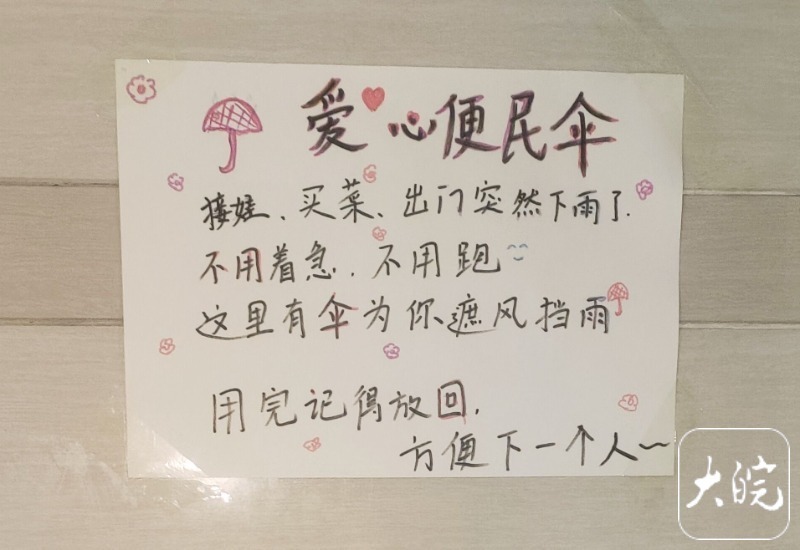 爱心便民伞
接娃、买菜、出门突然下雨了.
不用着急.不用跑
这里有伞为你遮风挡雨
用完记得放回,
方便下一个人～
大皖